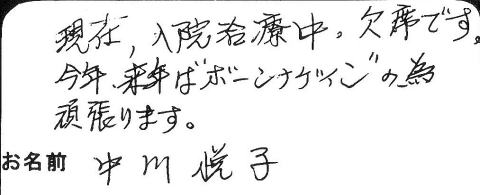 現在，入院治療中。欠席です。
今年、来年は"ボーンナゲイン"の為
頑張ります。
お名前 中川悦子